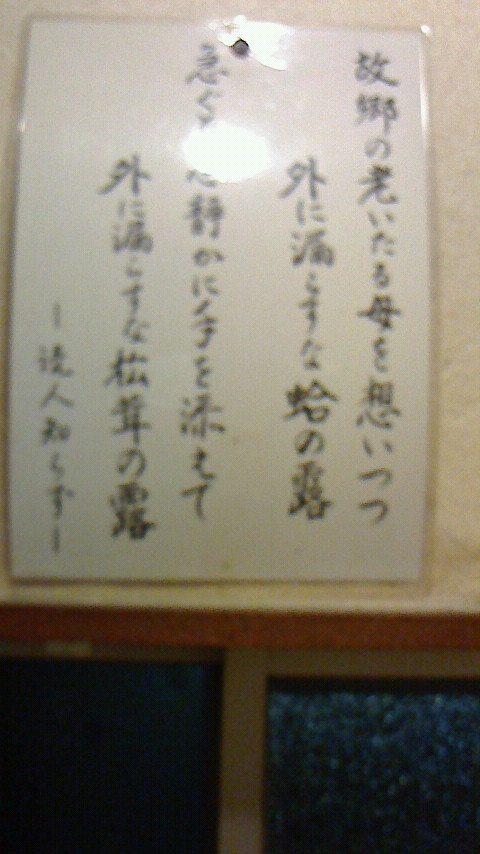 故郷の老いたる母を想いつつ
外に漏らすな蛤の露
急ぐ 静かに手を添えて
外に漏らすな松茸の露
ー読人知らずー